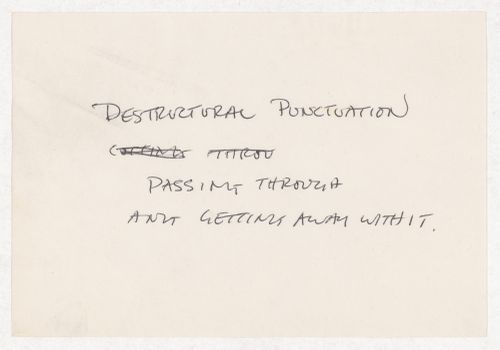 DESTRUCTURAL PUNCTUATION
CUTTING THROU
PASSING THROUGH
AND GETTING AWAY WITH IT.